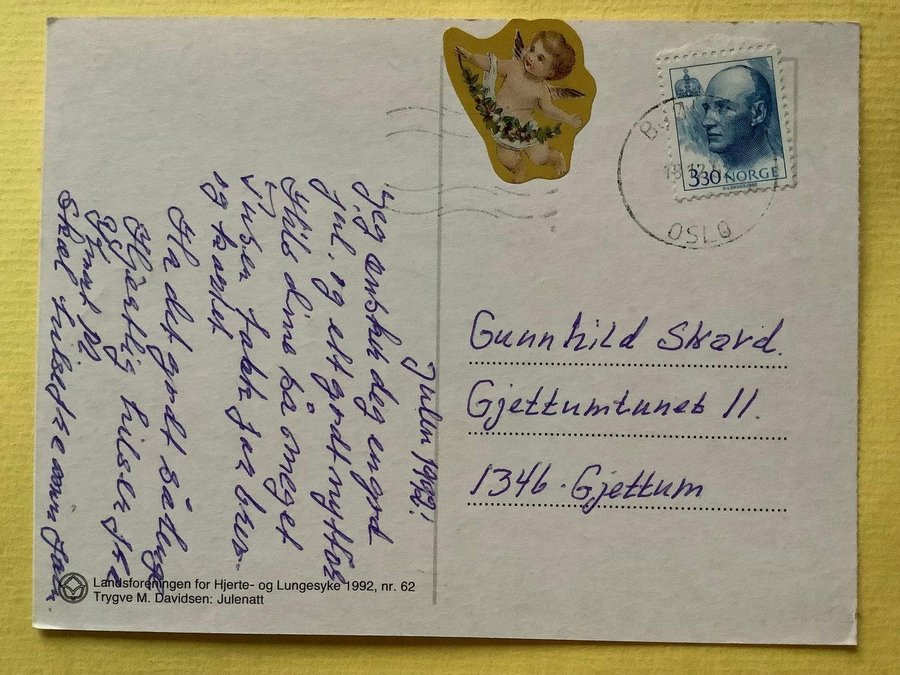 Julen 1992!
Jeg ønsker deg en god
jul, og et godt nyttår
Hils dine så meget
Tusen takk for brev
og kortet
Ha det godt så lenge
Hjertelig hilsen fra
Skal hilse
Gunnhild Skard.
Gjettumtunet 11.
1346 · Gjettum
3.30 NORGE
OSLO
Landsforeningen for Hjerte- og Lungesyke 1992, nr. 62
Trygve M. Davidsen: Julenatt